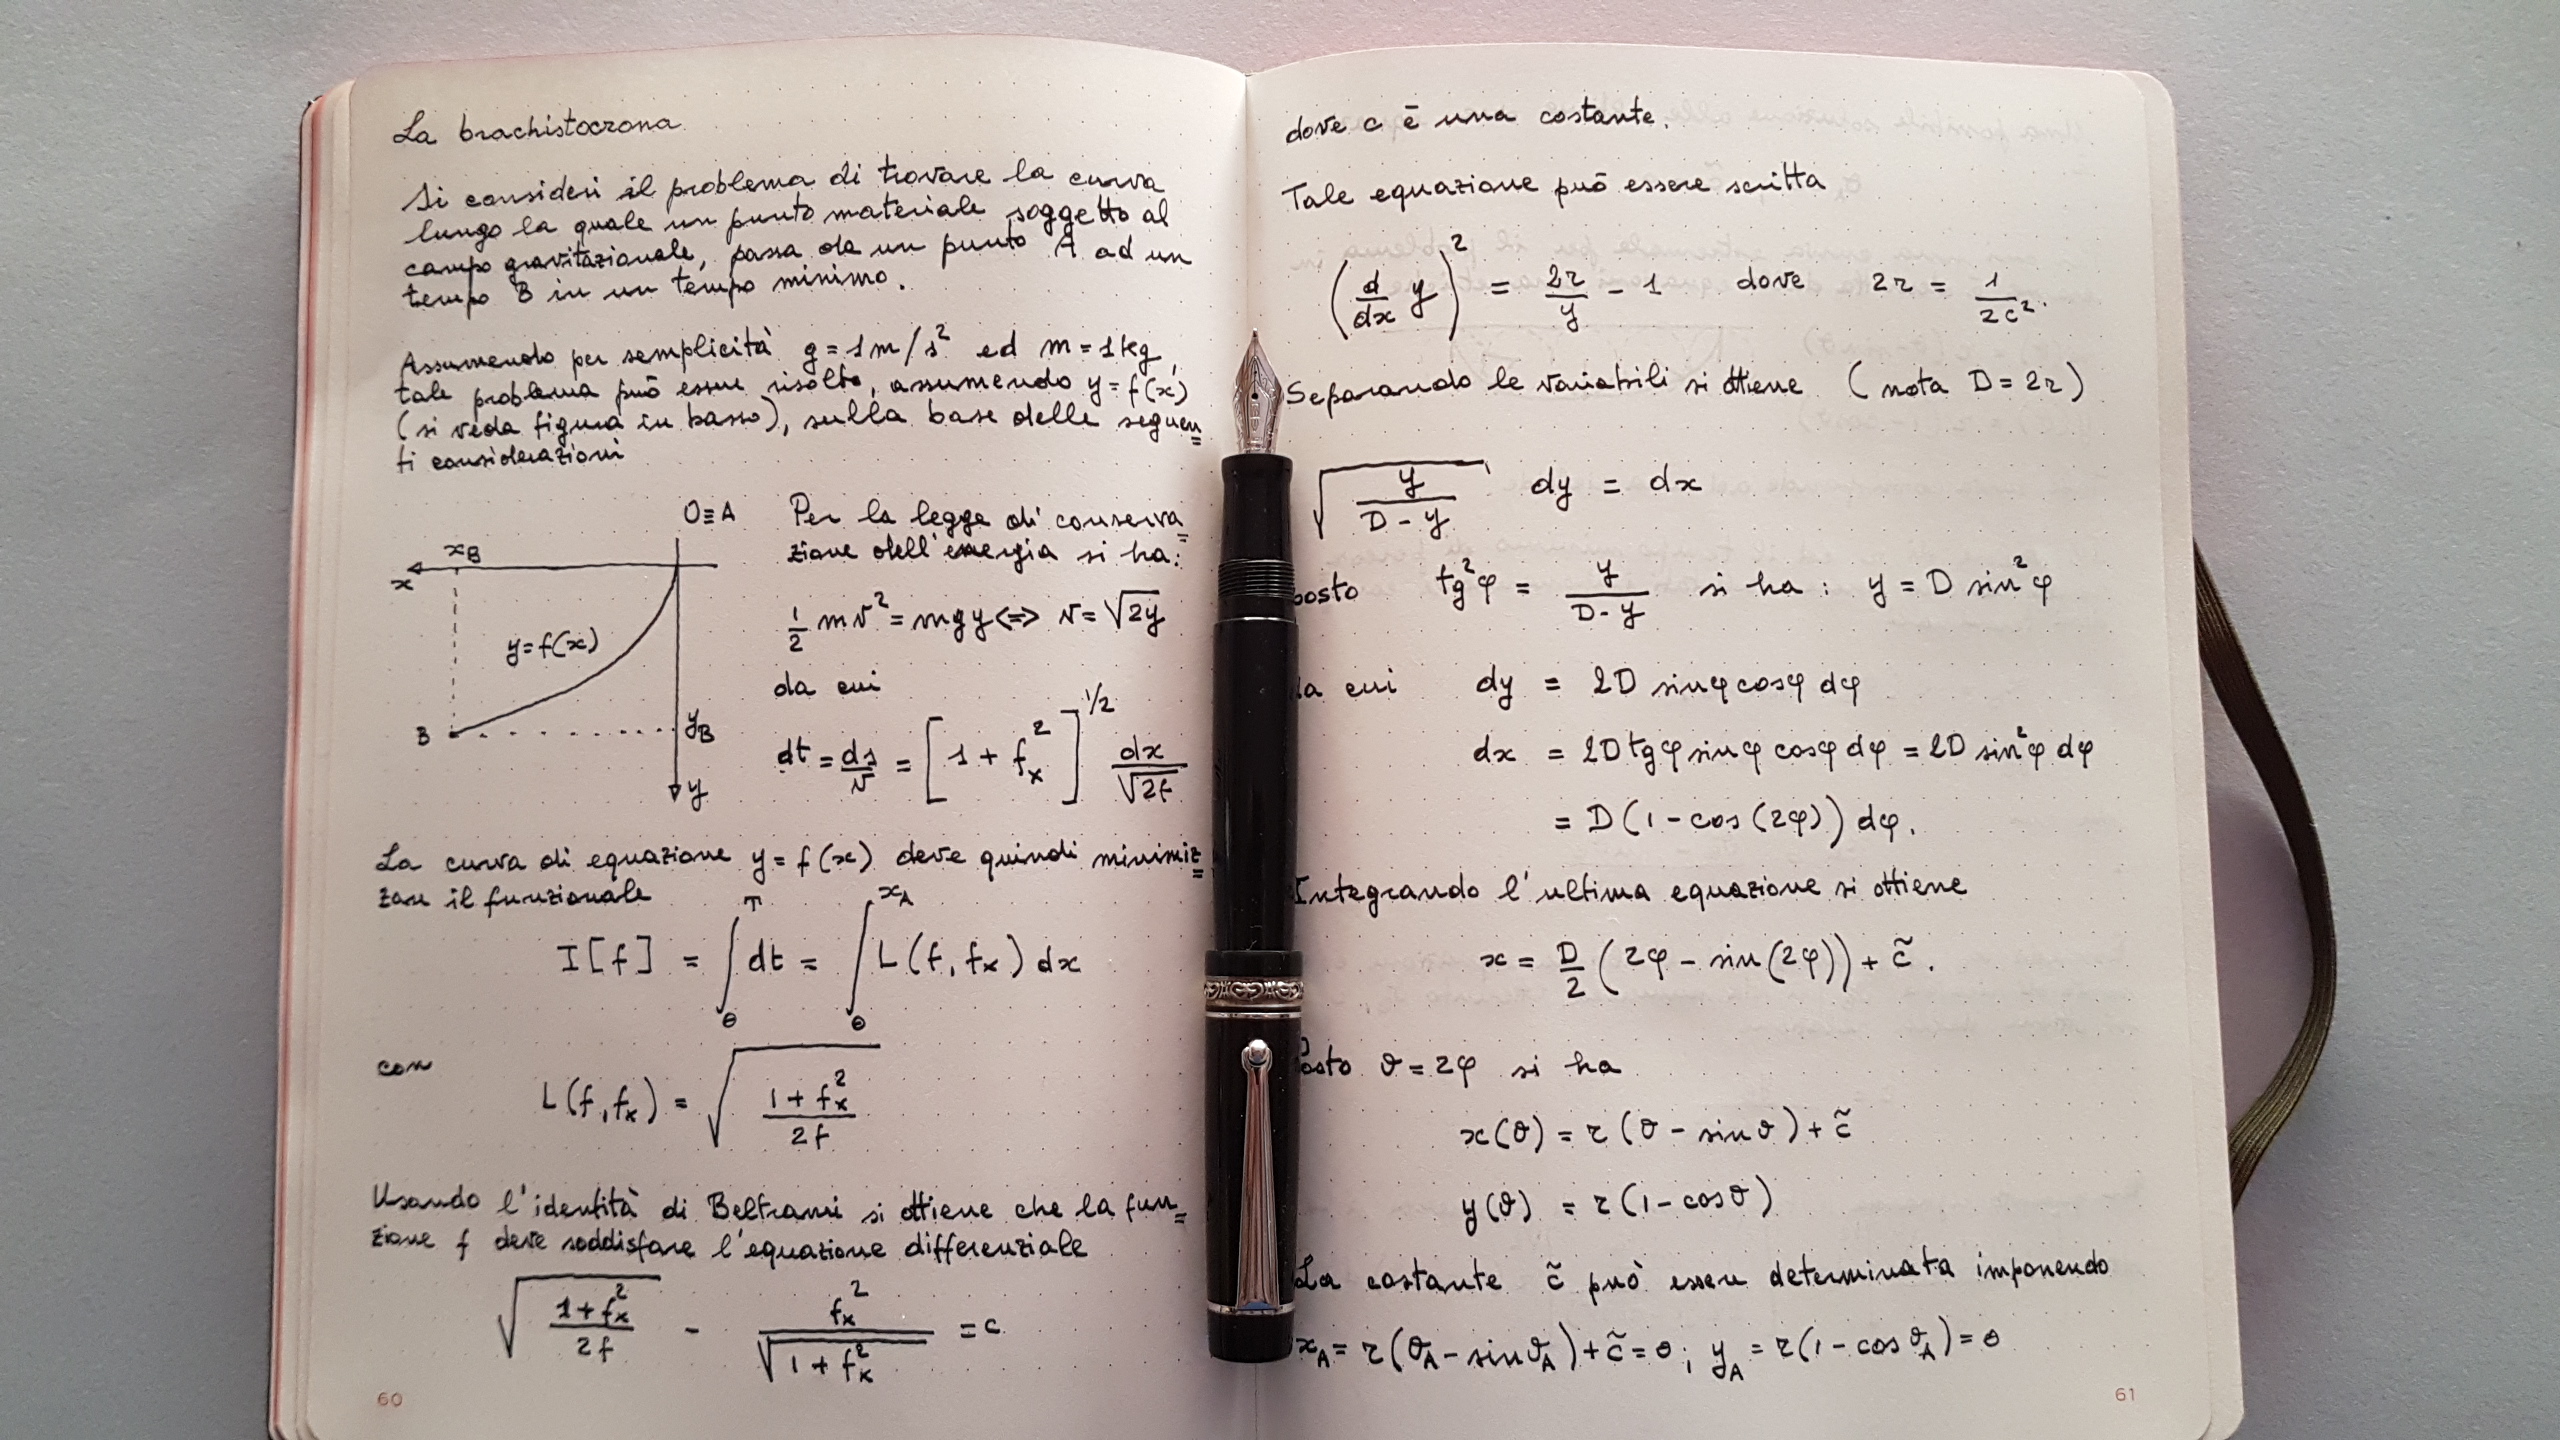 La brachistocrona
Si consideri il problema di trovare la curva
lungo la quale un punto materiale soggetto al
campo gravitazionale, passa da un punto A ad un
tempo B in un tempo minimo.
Assumendo per semplicità g = 1 m/s² ed m = 1 kg,
tale problema può essere risolto, assumendo y = f(x)
(si veda figura in basso), sulla base delle seguen=
ti considerazioni
O≡A
x_B
x
y = f(x)
B
y_B
y
Per la legge di conserva=
zione dell'energia si ha:
1/2 mv² = mgy <=> v = √2y
da cui
dt = ds/v = [1 + f_x²]^1/2 dx/√2f
La curva di equazione y = f(x) deve quindi minimiz=
zare il funzionale
I[f] = ∫_0^T dt = ∫_0^x_A L(f, f_x) dx
con
L(f, f_x) = √((1 + f_x²)/2f)
Usando l'identità di Beltrami si ottiene che la fun=
zione f deve soddisfare l'equazione differenziale
√((1 + f_x²)/2f) - f_x²/√(1 + f_x²) = c
60
dove c è una costante.
Tale equazione può essere scritta
(d/dx y)² = 2r/y - 1 dove 2r = 1/2c².
Separando le variabili si ottiene (nota D = 2r)
√(y/(D - y)) dy = dx
posto tg²φ = y/(D - y) si ha : y = D sin²φ
da cui dy = 2D sinφ cosφ dφ
dx = 2D tgφ sinφ cosφ dφ = 2D sin²φ dφ
= D(1 - cos(2φ)) dφ.
Integrando l'ultima equazione si ottiene
x = D/2 (2φ - sin(2φ)) + c̃.
Posto ϑ = 2φ si ha
x(ϑ) = r(ϑ - sinϑ) + c̃
y(ϑ) = r(1 - cosϑ)
La costante c̃ può essere determinata imponendo
x_A = r(ϑ_A - sinϑ_A) + c̃ = 0; y_A = r(1 - cosϑ_A) = 0
61